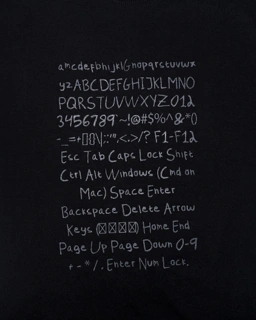 abcdefghijklmnopqrstuvwx
yzABCDEFGHIJKLMNO
PQRSTUVWXYZ012
3456789`~!@#$%^&*()
-_=+[]{}\|;:'",<.>/? F1-F12
Esc Tab Caps Lock Shift
Ctrl Alt Windows (Cmd on
Mac) Space Enter
Backspace Delete Arrow
Keys (☒☒☒☒) Home End
Page Up Page Down 0-9
+ - * / . Enter Num Lock,